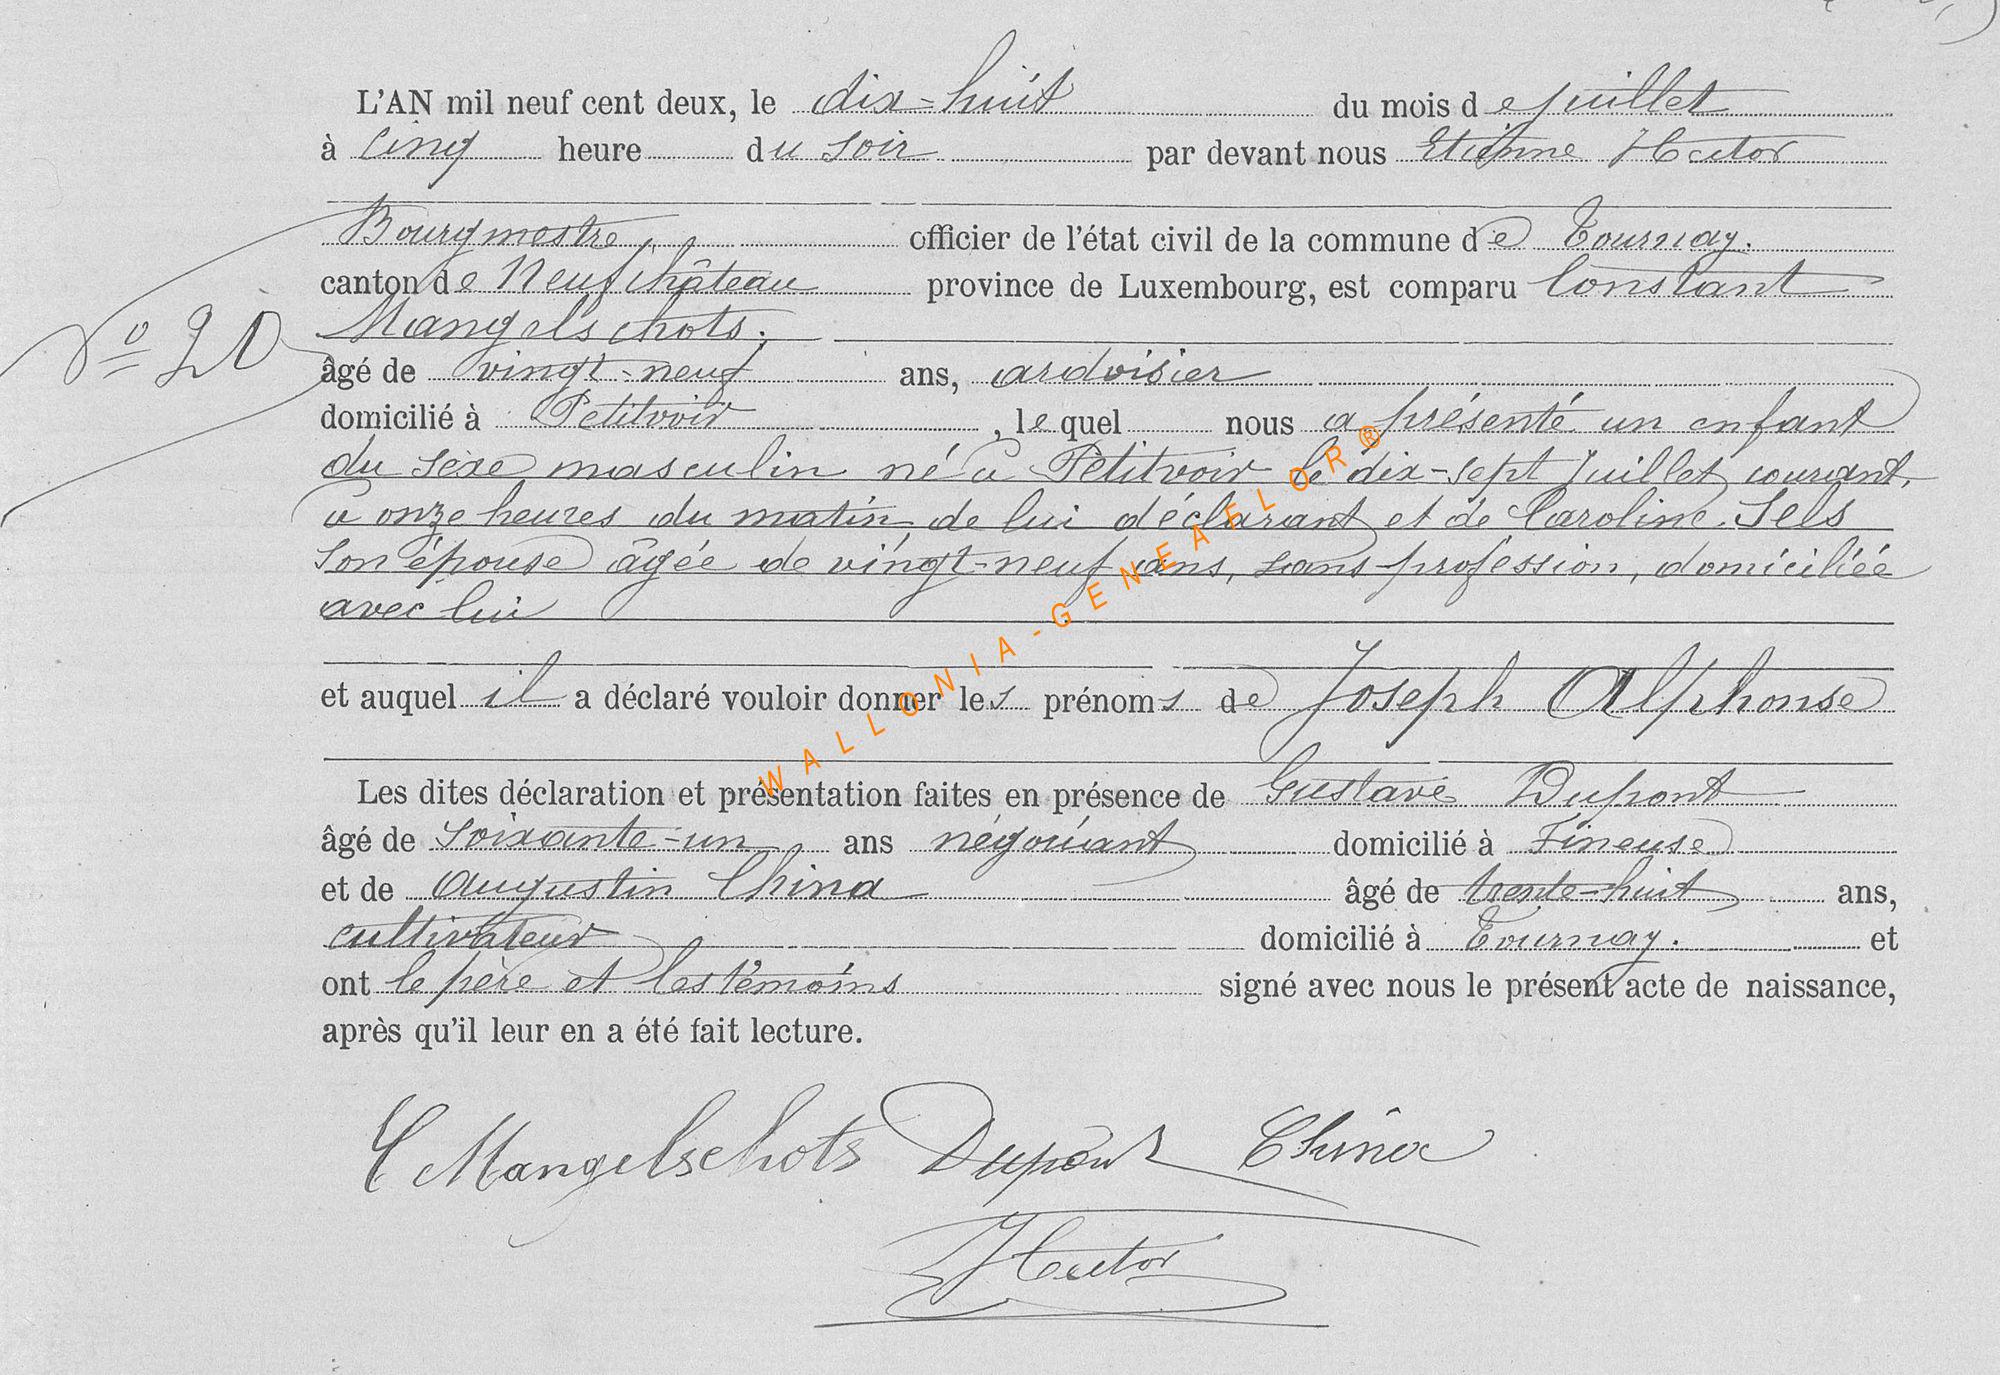 L'AN mil neuf cent deux, le dix-huit du mois de juillet
à cinq heure du soir par devant nous Etienne Hector
Bourgmestre officier de l'état civil de la commune de Tournay.
canton de Neufchâteau province de Luxembourg, est comparu Constant
N° 20
Mangelschots.
âgé de vingt-neuf ans, ardoisier
domicilié à Petitvoir, lequel nous a présenté un enfant
du sexe masculin né à Petitvoir le dix-sept juillet courant,
à onze heures du matin de lui déclarant et de Caroline Sels
son épouse âgée de vingt-neuf ans, sans profession, domiciliée
avec lui
et auquel il a déclaré vouloir donner les prénoms de Joseph Alphonse
Les dites déclaration et présentation faites en présence de Gustave Dupont
âgé de soixante-un ans négociant domicilié à Fineuse
et de Augustin China âgé de trente-huit ans,
cultivateur domicilié à Tournay. et
ont le père et les témoins signé avec nous le présent acte de naissance,
après qu'il leur en a été fait lecture.
C Mangelschots Dupont China
Hector
WALLONIA-GENEAFLOR®